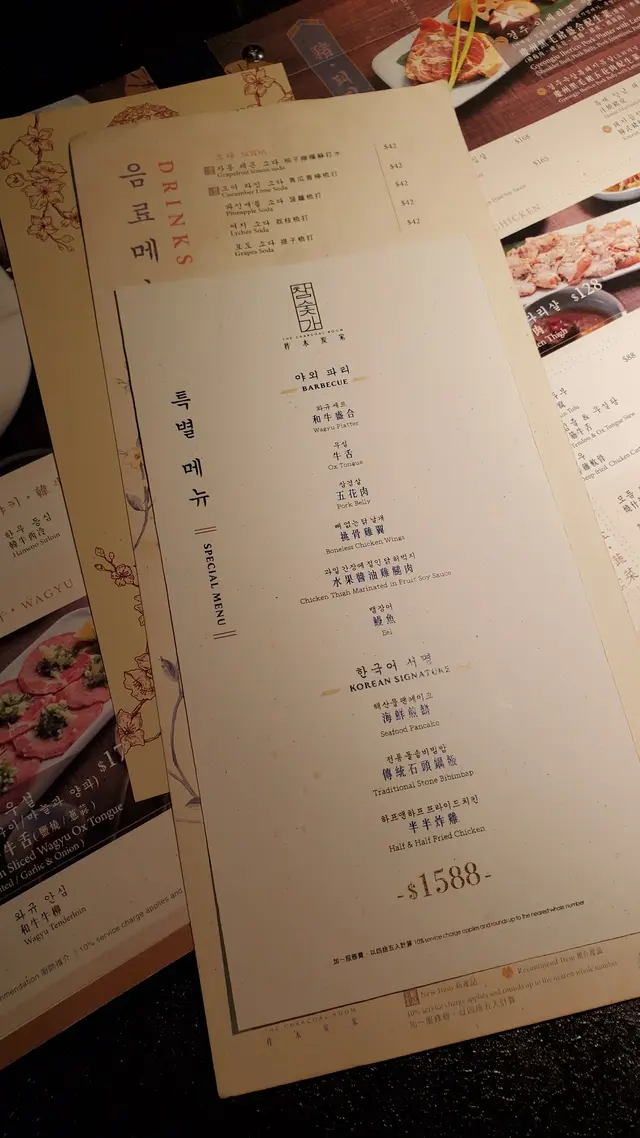 음료메
DRINKS
소다 SODA
자몽 레몬 소다 柚子檸檬梳打水 $42
Grapefruit lemon soda
오이 라임 소다 青瓜青檸梳打 $42
Cucumber Lime Soda
파인애플 소다 菠蘿梳打 $42
Pineapple Soda
여지 소다 荔枝梳打 $42
Lychee Soda
포도 소다 提子梳打 $42
Grapes Soda
참숯가
THE CHARCOAL ROOM
柞木炭家
특별 메뉴
SPECIAL MENU
야외 파리
BARBECUE
와규세트
和牛盛合
Wagyu Platter
우설
牛舌
Ox Tongue
삼겹살
五花肉
Pork Belly
뼈 없는 닭 날개
挑骨雞翼
Boneless Chicken Wings
과일 간장에 절인 닭 허벅지
水果醬油雞腿肉
Chicken Thigh Marinated in Fruit Soy Sauce
뱀장어
鰻魚
Eel
한국어 서명
KOREAN SIGNATURE
해산물 팬케이크
海鮮煎餅
Seafood Pancake
전통 돌솥비빔밥
傳統石頭鍋飯
Traditional Stone Bibimbap
하프앤하프 프라이드치킨
半半炸雞
Half & Half Fried Chicken
-$1588-
加一服務費，以四捨五入計算 10% service charge applies and rounds up to the nearest whole number
THE CHARCOAL ROOM
柞木炭家
New Item 新產品
Recommend Item 推介產品
10% service charge applies and rounds up to the nearest whole number
加一服務費，以四捨五入計算
한우 등심
韓牛肉冷
Hanwoo Sirloin
WAGYU
$17
우설
牛舌 (鹽燒 / 蔥蒜)
Sliced Wagyu Ox Tongue
/ Garlic & Onion )
와규 안심
和牛牛柳
Wagyu Tenderloin
10% service charge applies and
$168
$165
CHICKEN
$128
Thigh
$88